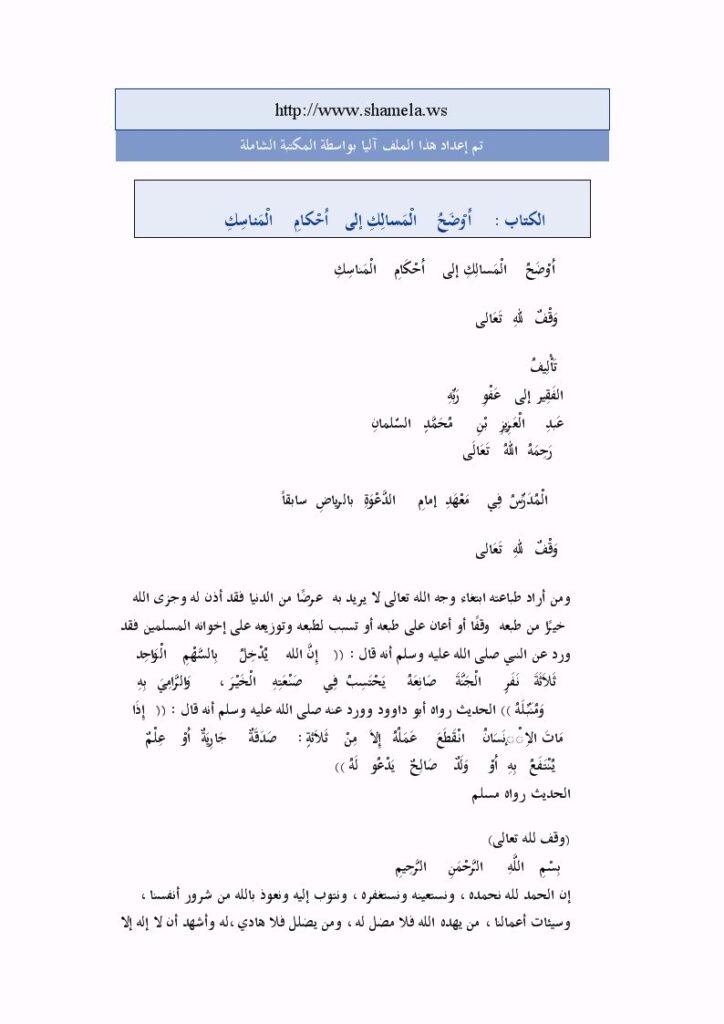 http://www.shamela.ws
تم إعداد هذا الملف آليا بواسطة المكتبة الشاملة
الكتاب : أَوْضَحُ الْمَسالِكِ إلى أَحْكامِ الْمَناسِكِ
أَوْضَحُ الْمَسالِكِ إلى أَحْكَامِ الْمَنَاسِكِ
وَقْفٌ للهِ تَعَالى
تَأْلِيفُ
الفَقِير إلى عَفْوِ رَبِّهِ
عَبدِ الْعَزِيزِ بْنِ مُحَمَّدٍ السّلمانِ
رَحِمَهُ اللهُ تَعَالَى
الْمُدَرِّسُ فِي مَعْهَدِ إمامِ الدَّعْوَةِ بالرياضِ سابقاً
وَقْفٌ للهِ تَعَالى
ومن أراد طباعته ابتغاء وجه الله تعالى لا يريد به عرضًا من الدنيا فقد أذن له وجزى الله
خيرًا من طبعه وقفًا أو أعان على طبعه أو تسبب لطبعه وتوزيعه على إخوانه المسلمين فقد
ورد عن النبي صلى الله عليه وسلم أنه قال : (( إِنَّ الله يُدْخِلُ بِالسَّهْمِ الْوَاحِدِ
ثَلاَثَةَ نَفَرٍ الْجَنَّةَ صَانِعَهُ يَحْتَسِبُ فِي صَنْعَتِهِ الْخَيْرَ ، وَالرَّامِيَ بِهِ
وَمُنَبِّلَهُ )) الحديث رواه أبو داوود وورد عنه صلى الله عليه وسلم أنه قال : (( إِذَا
مَاتَ الإِنْسَانُ انْقَطَعَ عَمَلُهُ إِلاَّ مِنْ ثَلاَثَةٍ : صَدَقَةٌ جَارِيَةٌ أَوْ عِلْمٌ
يُنْتَفَعُ بِهِ أَوْ وَلَدٌ صَالِحٌ يَدْعُو لَهُ ))
الحديث رواه مسلم
(وقف لله تعالى)
بِسْمِ اللَّهِ الرَّحْمَنِ الرَّحِيمِ
إن الحمد لله نحمده ، ونستعينه ونستغفره ، ونتوب إليه ونعوذ بالله من شرور أنفسنا ،
وسيئات أعمالنا ، من يهده الله فلا مضل له ، ومن يضلل فلا هادي ،له وأشهد أن لا إله إلا